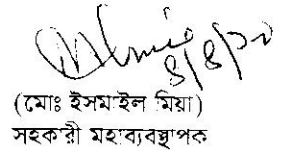 ৪/৪/২০
(মোঃ ইসমাইল মিয়া)
সহকারী মহাব্যবস্থাপক